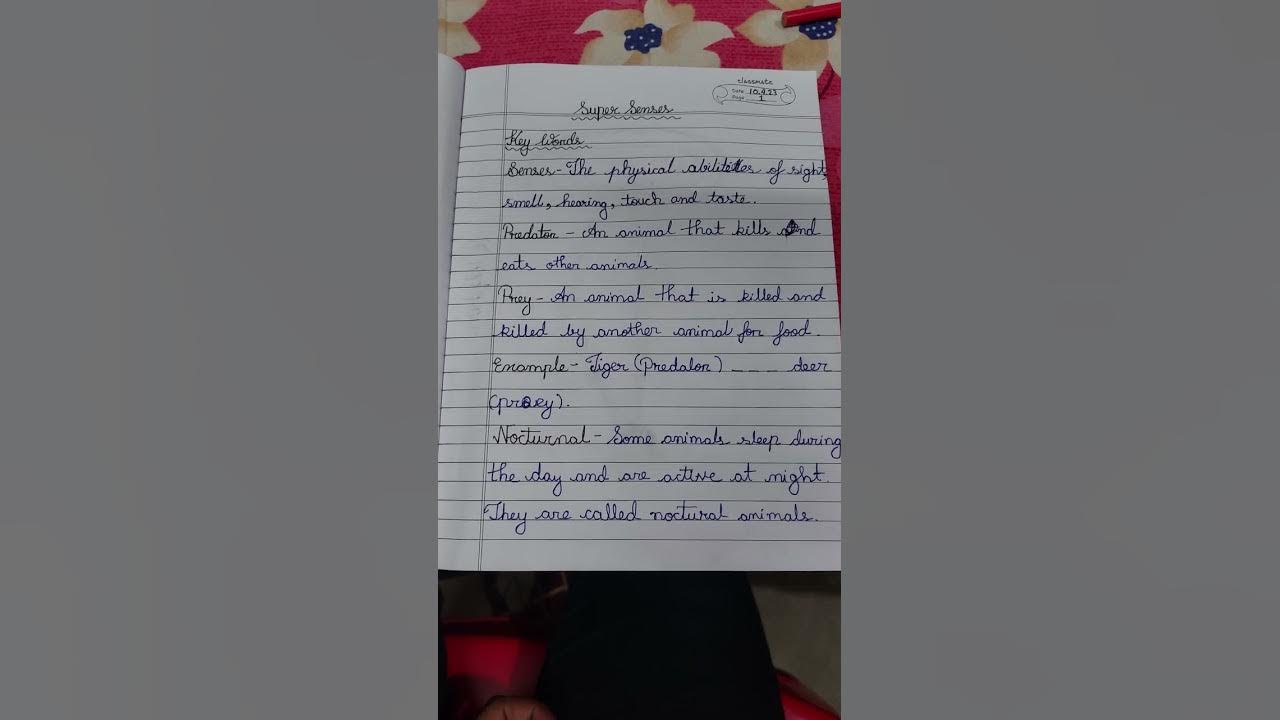 classmate
Date 10.4.23
Page 1
Super Senses
Key Words
Senses - The physical abilitetes of sight,
smell, hearing, touch and taste.
Predator - An animal that kills and
eats other animals.
Prey - An animal that is killed and
killed by another animal for food.
Example - Tiger (Predator) _ _ _ deer
(prey).
Nocturnal - Some animals sleep during
the day and are active at night.
They are called noctural animals.